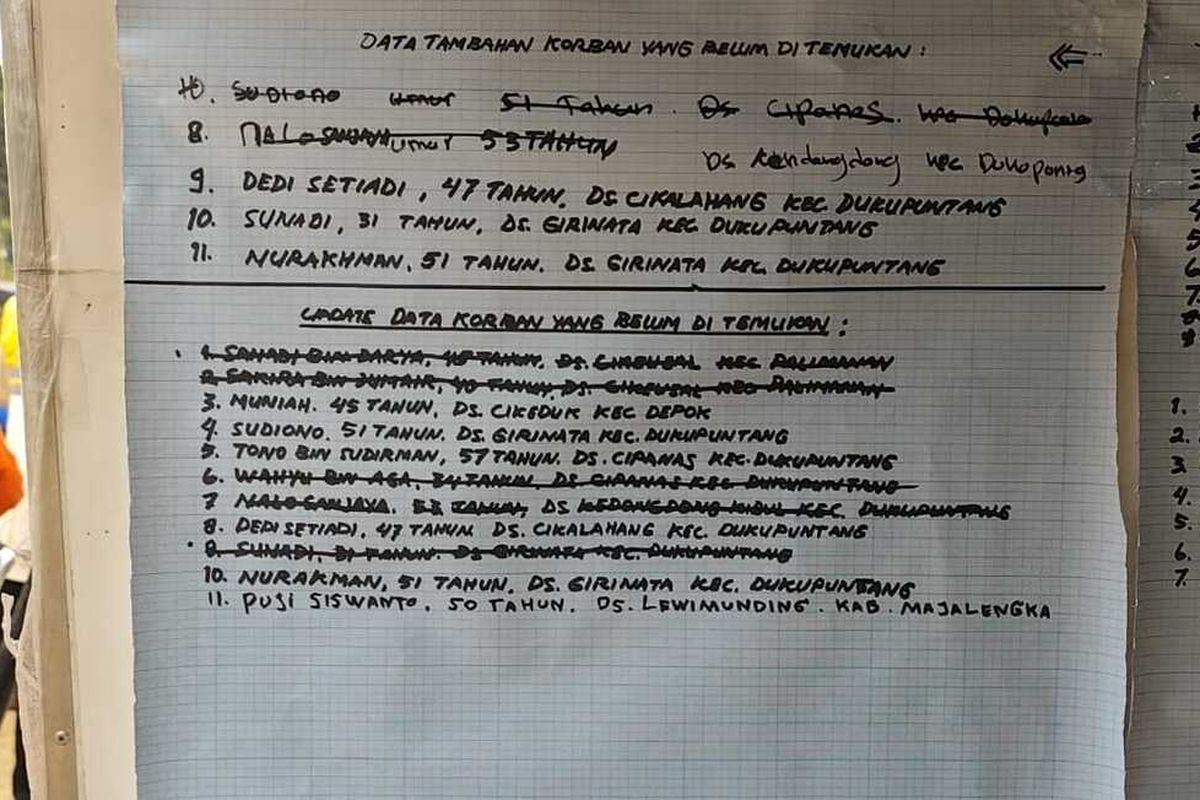 DATA TAMBAHAN KORBAN YANG BELUM DI TEMUKAN :
10. SUDIONO UMUR 51 Tahun. Ds CIPANAS.
8. NALOSANJAYA umur 53 TAHUN
Ds Kendangdong kec Dukopontg
9. DEDI SETIADI, 47 TAHUN. DS. CIKALAHANG KEC. DUKUPUNTANG
10. SUNADI, 31 TAHUN, DS. GIRINATA KEC. DUKUPUNTANG
11. NURAKHMAN. 51 TAHUN. DS. GIRINATA KEC. DUKUPUNTANG
UPDATE DATA KORBAN YANG BELUM DI TEMUKAN :
1. SANADI BIN DARYA, 48 TAHUN. DS. KEC PALIMANAN
2. SAKIRA BIN JUMAIR, 40 TAHUN, DS. KEC PALIMANAN
3. MUNIAH. 45 TAHUN, DS. CIKEDUK KEC DEPOK
4. SUDIONO. 51 TAHUN. DS. GIRINATA KEC. DUKUPUNTANG
5. TONO BIN SUDIRMAN, 57 TAHUN. DS. CIPANAS KEC. DUKUPUNTANG
6. WAHYU BIN AGA, 34 TAHUN, DS CIPANAS KEC DUKUPUNTANG
7 NALO SANJAYA. 53 TAHUN, DS KEDONGDONG KIDUL KEC. DUKUPUNTANG
8. DEDI SETIADI, 47 TAHUN. DS. CIKALAHANG KEC. DUKUPUNTANG
9. SUNADI, 31 TAHUN. DS GIRINATA KEC. DUKUPUNTANG
10. NURAKMAN, 51 TAHUN. DS. GIRINATA KEC. DUKUPUNTANG
11. PUJI SISWANTO. 50 TAHUN. DS. LEWIMUNDING. KAB. MAJALENGKA
6
7.
8
9
1.
2.
3.
4.
5.
6.
7.